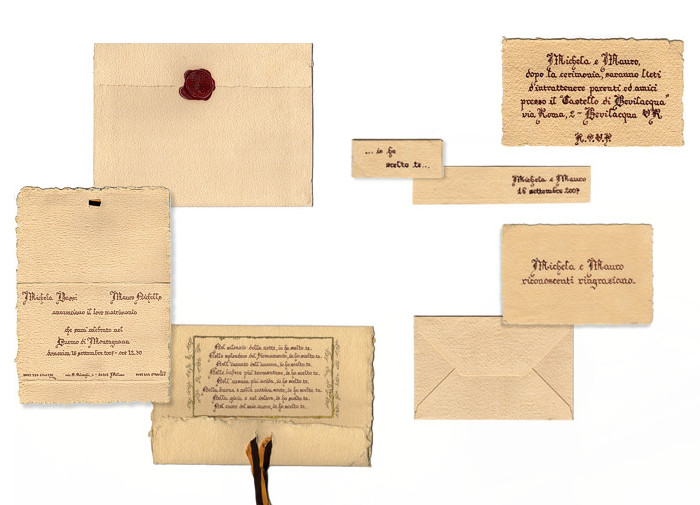 Michela e Mauro,
dopo la cerimonia, saranno lieti
d'intrattenere parenti ed amici
presso il "Castello di Bevilacqua"
via Roma, 2 - Bevilacqua VR
R.S.V.P.
... io ho
scelto te...
Michela e Mauro
16 settembre 2007
Michela e Mauro
riconoscenti ringraziano.
Michela Mauro
annunciano il loro matrimonio
che sarà celebrato nel
Duomo di Montagnana
domenica 16 settembre 2007 - ore 12.30
Nel silenzio della notte, io ho scelto te.
Nello splendore del firmamento, io ho scelto te.
Nell'incanto dell'aurora, io ho scelto te.
Nelle bufere più tormentose, io ho scelto te.
Nell'arsura più arida, io ho scelto te.
Nella buona e nella cattiva sorte, io ho scelto te.
Nella gioia e nel dolore, io ho scelto te.
Nel cuore del mio cuore, io ho scelto te.